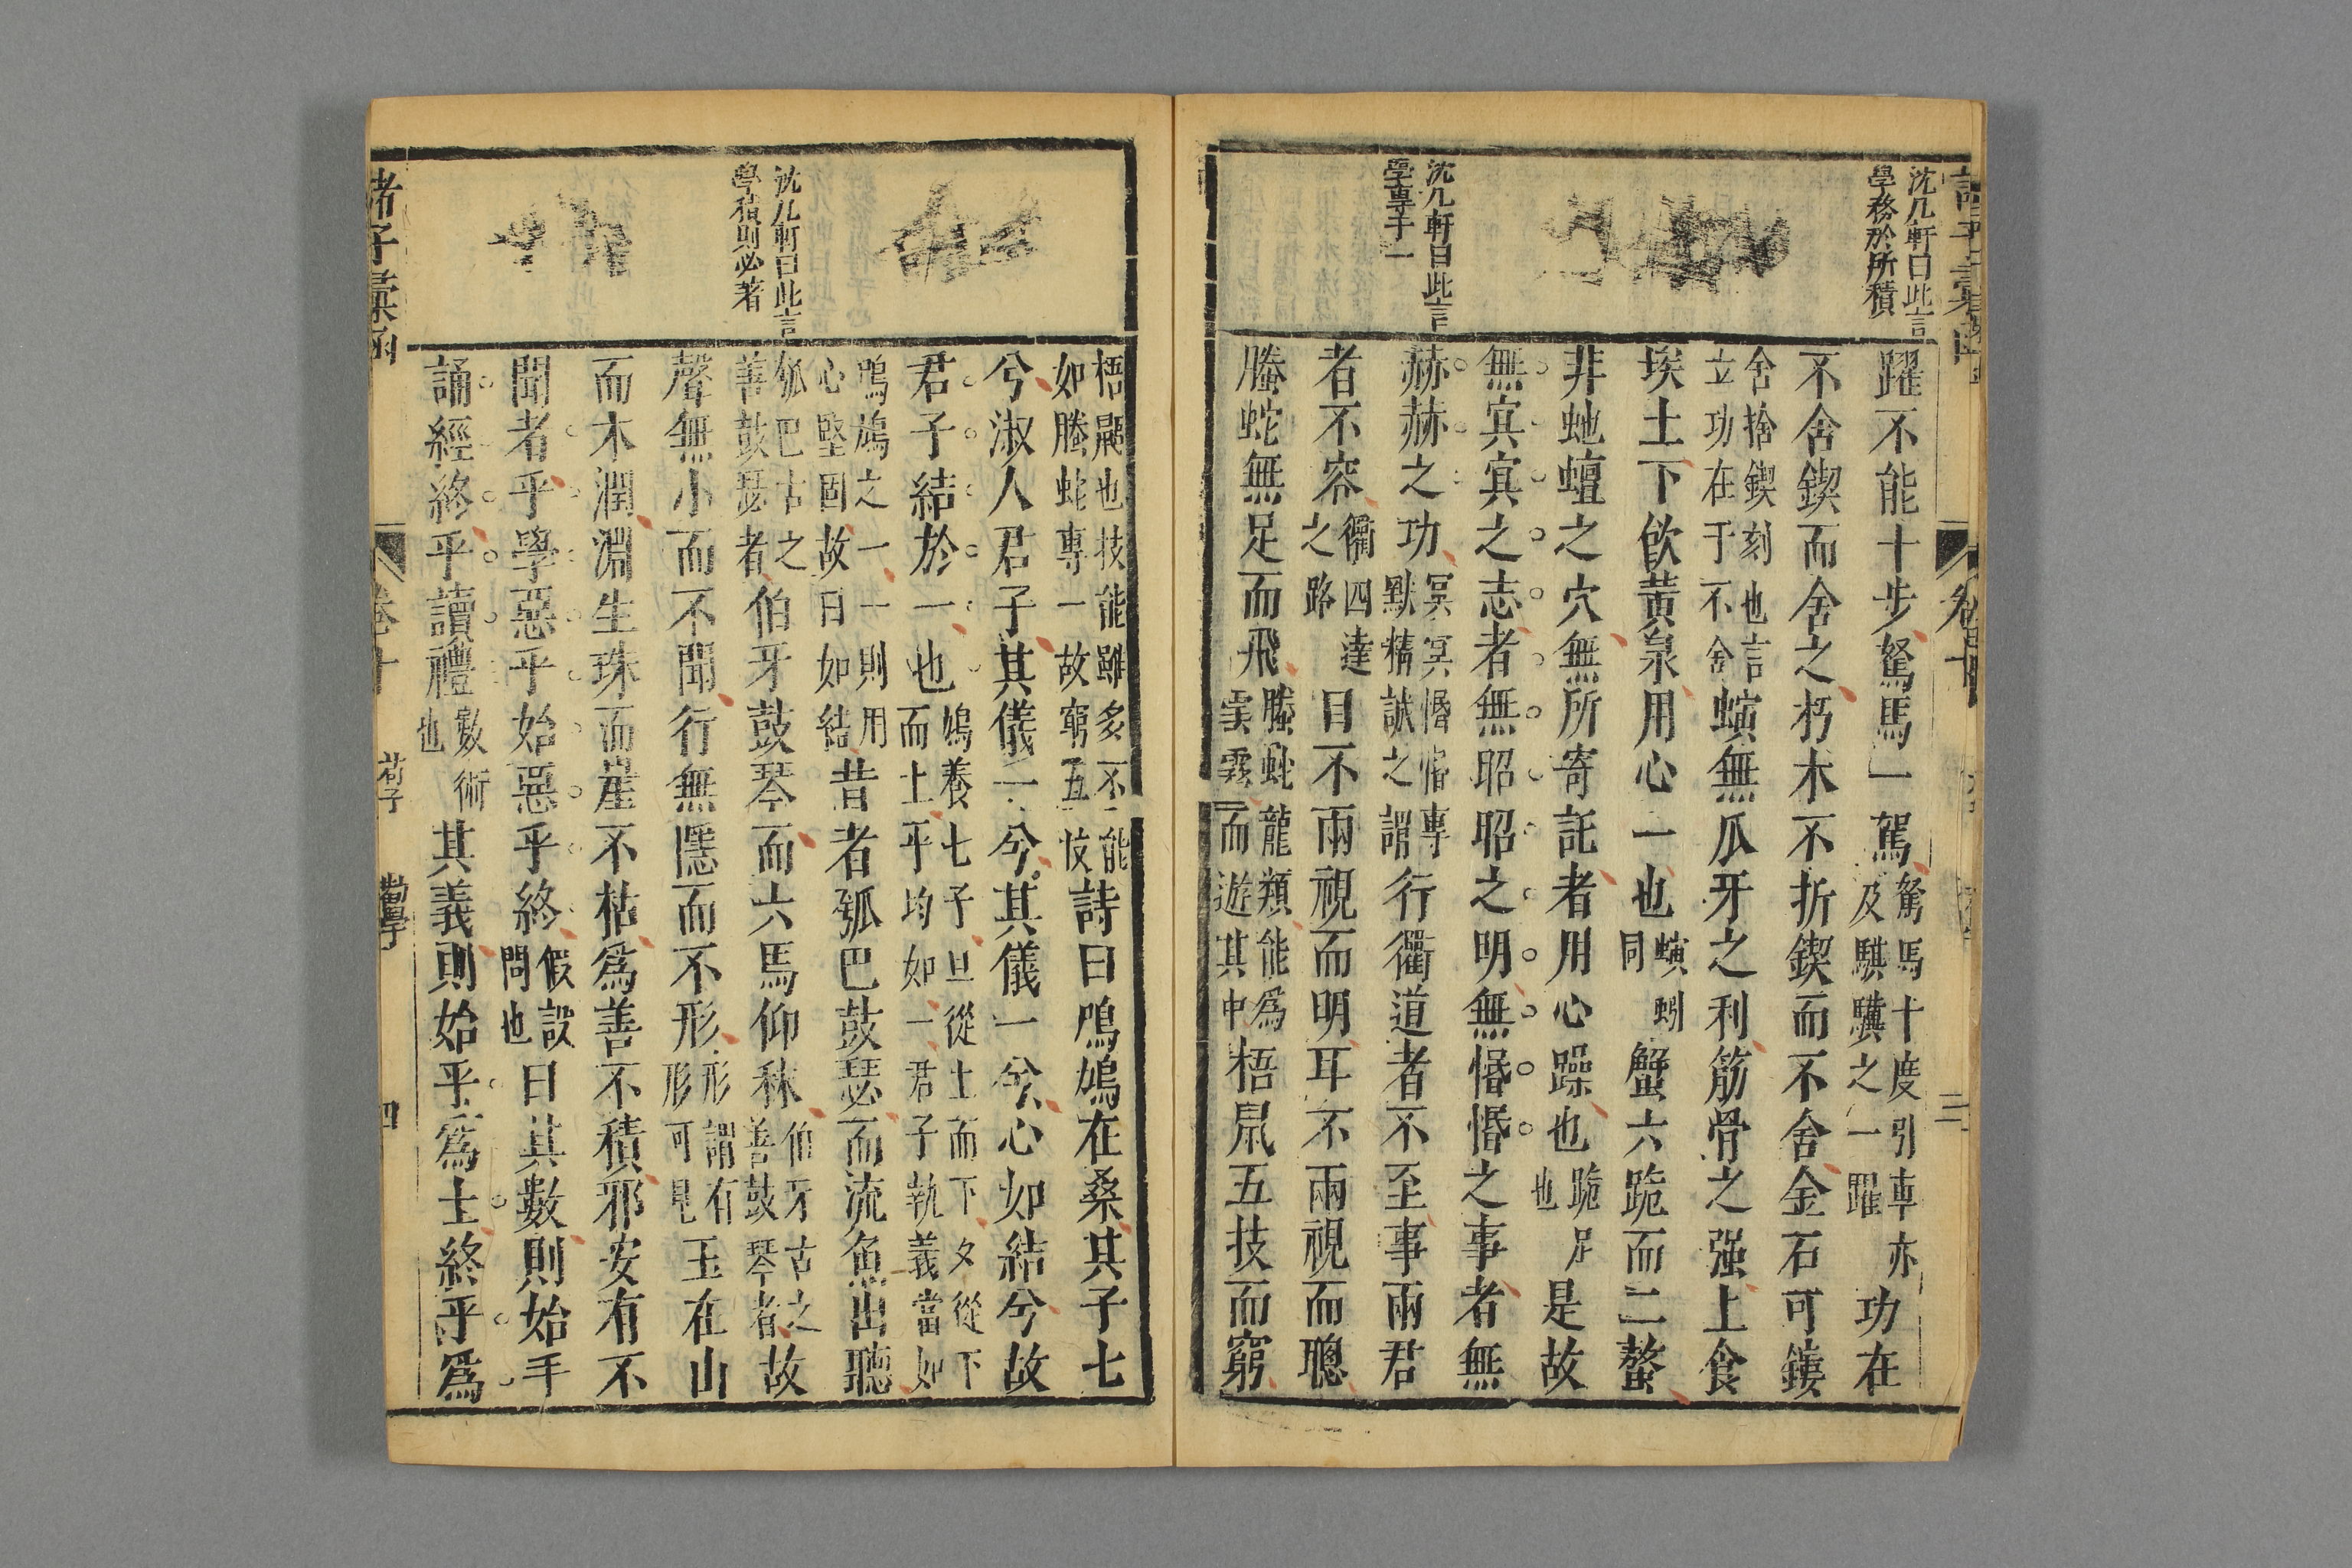 沈几軒曰此言
學務於所積
沈几軒曰此言
學專于一
躍不能十步駑馬一駕駑馬十度引車亦及騏驥之一躍功在
不舍鍥而舍之朽木不折鍥而不舍金石可鏤
舍捨鍥刻也言立功在于不舍螾無爪牙之利筋骨之强上食
埃土下飮黃泉用心一也螾蚓同蟹六跪而二螯
非虵蟺之穴無所寄託者用心躁也跪足也是故
無冥冥之志者無昭昭之明無惛惛之事者無
赫赫之功冥冥惛惛專默精誠之謂行衢道者不至事兩君
者不容衢四達之路目不兩視而明耳不兩視而聰
螣蛇無足而飛螣蛇龍類能爲雲霧而遊其中梧鼠五技而窮
諸子彙函
卷十
荀子
勸學
四
沈几軒曰此言
學積則必著
梧鼫也技能雖多不能如螣蛇專一故窮五技詩曰鳲鳩在桑其子七
兮淑人君子其儀一兮其儀一兮心如結兮故
君子結於一也鳩養七子旦從上而下夕從下而上平均如一君子執義當如
鳲鳩之一一則用心堅固故曰如結昔者瓠巴鼓瑟而流魚出聽
瓠巴古之善鼓瑟者伯牙鼓琴而六馬仰秣伯牙古之善鼓琴者故
聲無小而不聞行無隱而不形形謂有形可見玉在山
而木潤淵生珠而崖不枯爲善不積邪安有不
聞者乎學惡乎始惡乎終假設問也曰其數則始乎
誦經終乎讀禮數術也其義則始乎爲士終乎爲